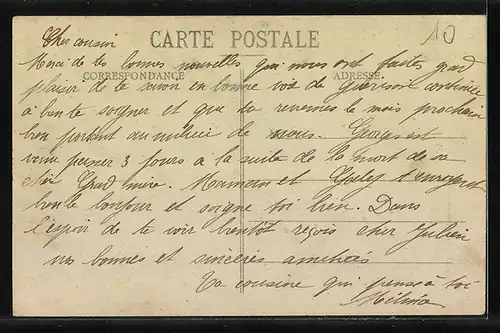 10
Cher cousin
CARTE POSTALE
Merci de tes bonnes nouvelles qui nous ont faites grand
CORRESPONDANCE ADRESSE
plaisir de te savoir en bonne voie de guérison continue
à bien te soigner et que tu reviennes le mois prochain
bien portant au milieu de nous. Georges est
venu passer 3 jours à la suite de la mort de sa
chère Grand mère. Maman et t'envoyent
bien le bonjour et soigne toi bien. Dans
l'espoir de te voir bientôt reçois cher Julien
nos bonnes et sincères amitiés
Ta cousine qui pense à toi